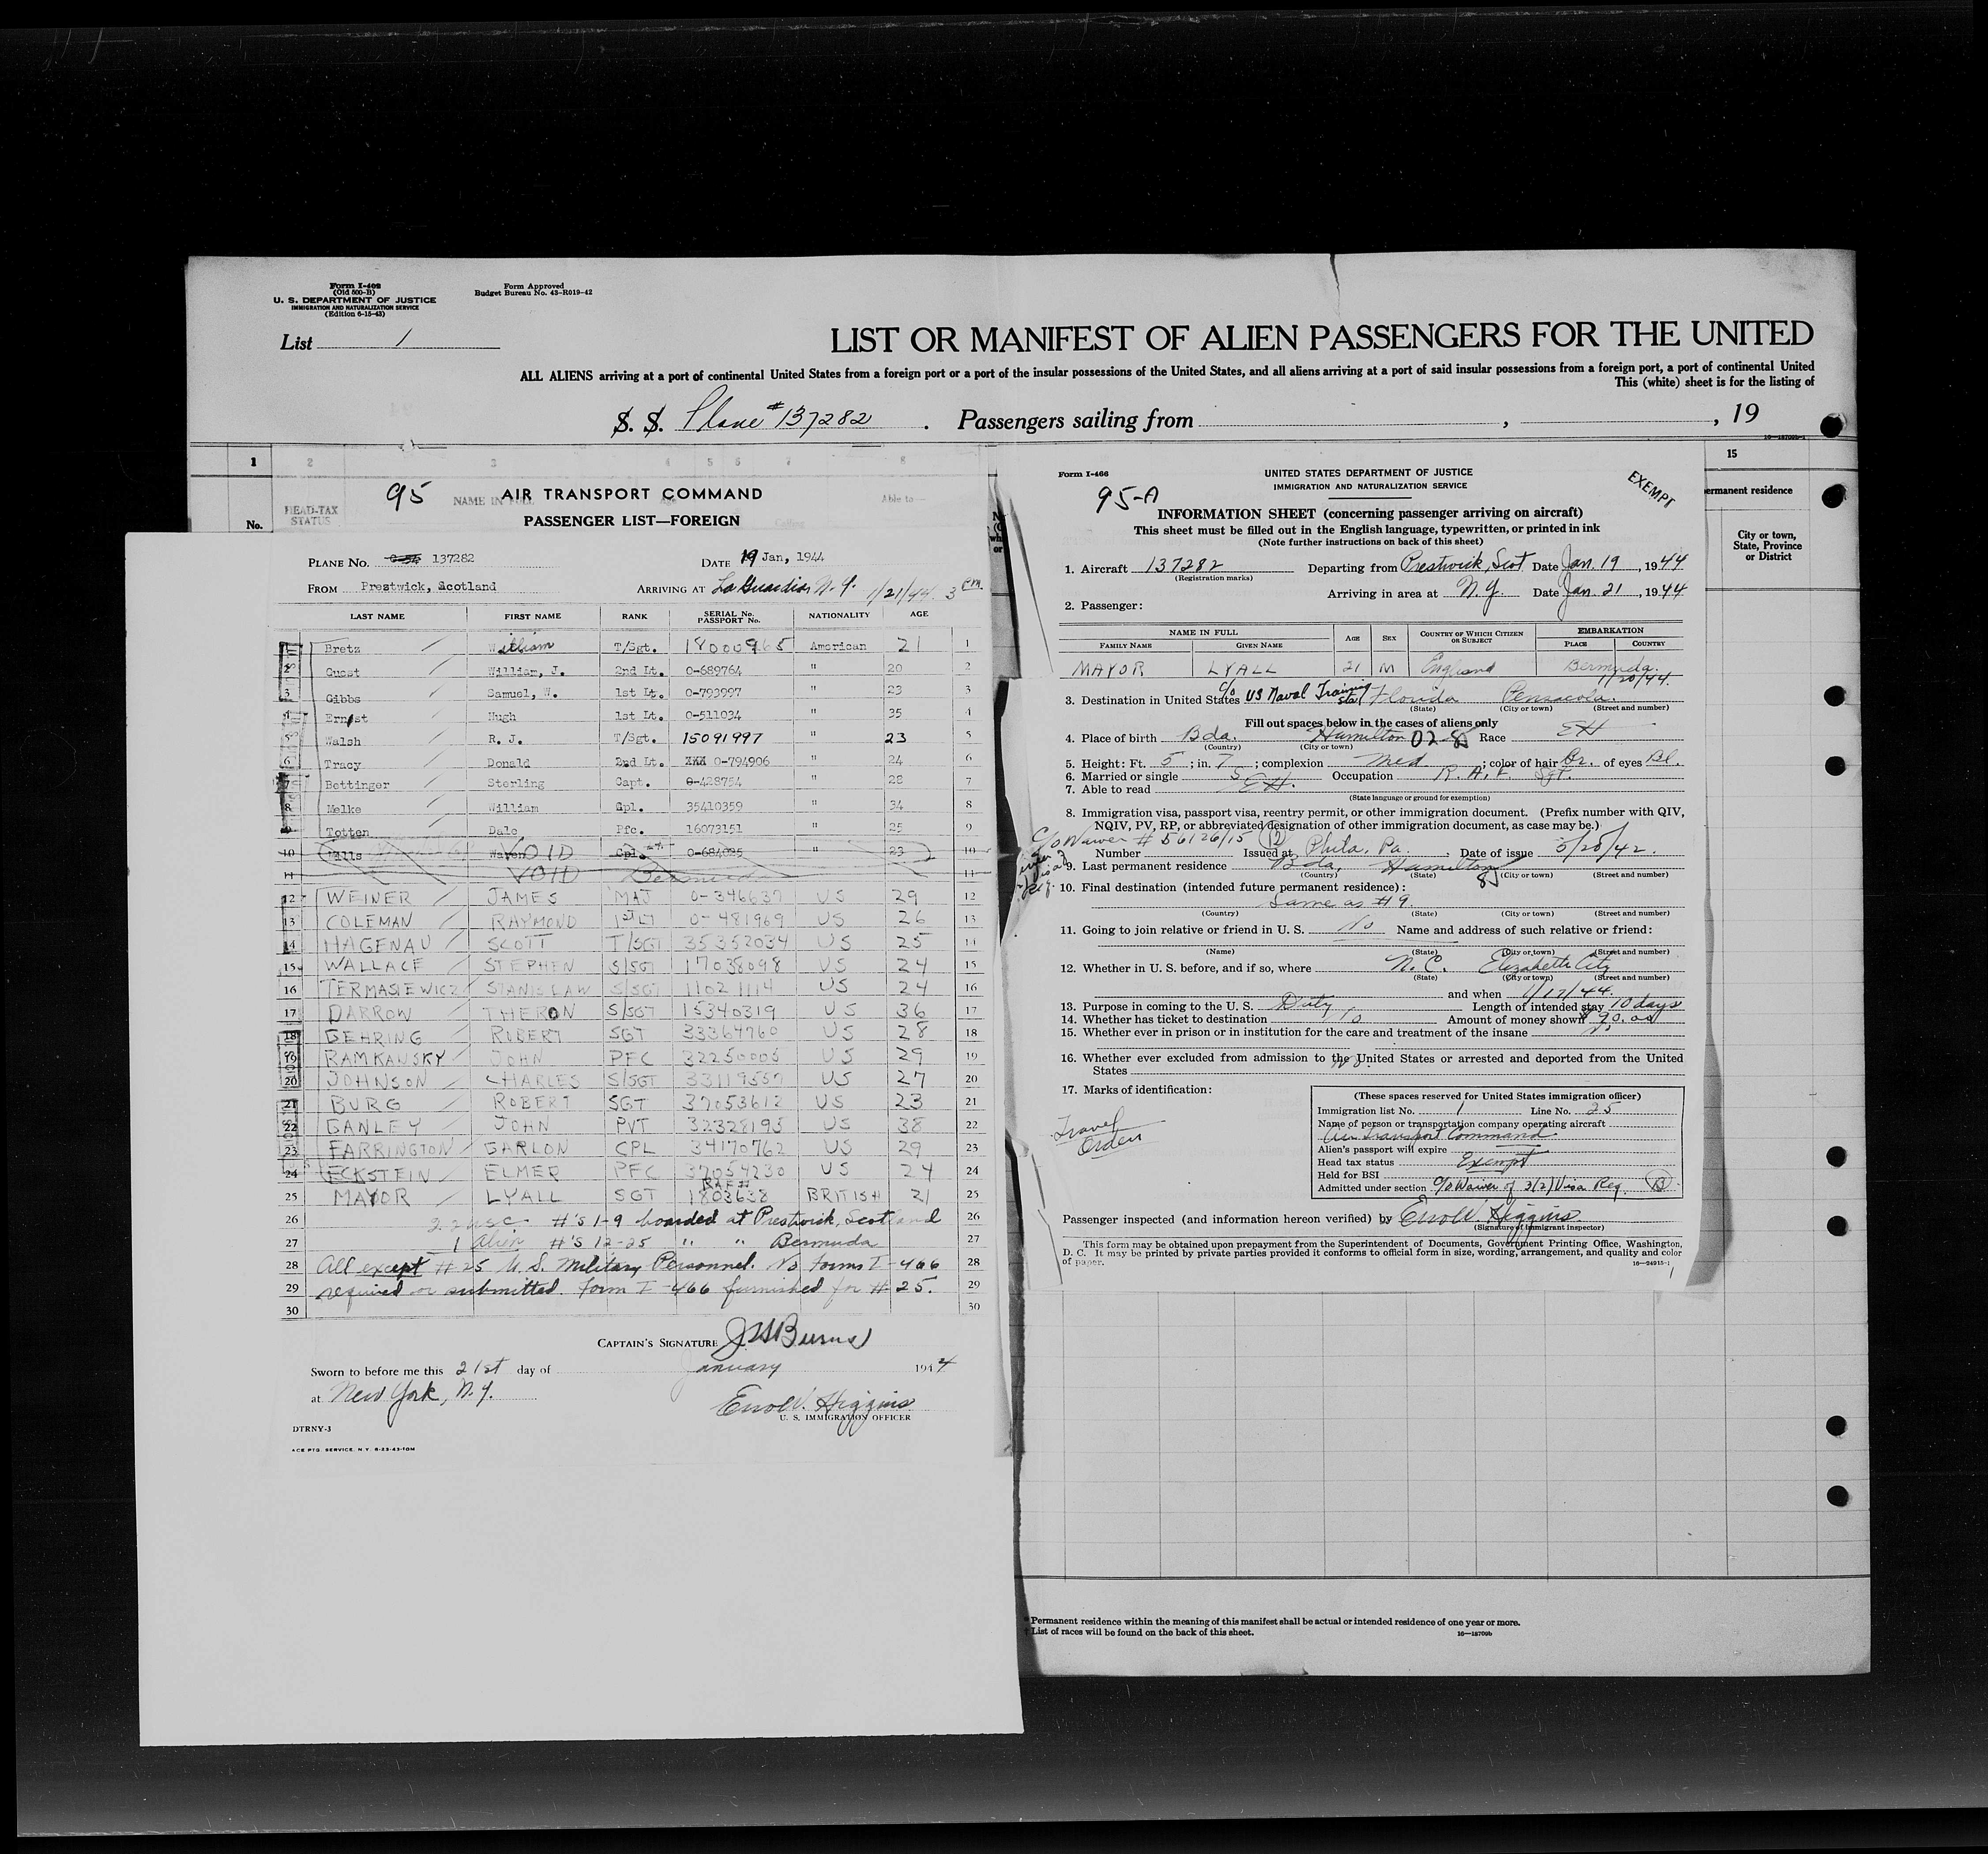 Form I-402
(Old 500-B)
U. S. DEPARTMENT OF JUSTICE
IMMIGRATION AND NATURALIZATION SERVICE
(Edition 6-15-43)
Form Approved
Budget Bureau No. 43-R019-42
List 1
LIST OR MANIFEST OF ALIEN PASSENGERS FOR THE UNITED
ALL ALIENS arriving at a port of continental United States from a foreign port or a port of the insular possessions of the United States, and all aliens arriving at a port of said insular possessions from a foreign port, a port of continental United
This (white) sheet is for the listing of
S. S. Plane #137282 . Passengers sailing from , , 19
1 2 3 4 5 6 7 8
HEAD-TAX STATUS
NAME IN FULL
Able to—
No.
95
AIR TRANSPORT COMMAND
PASSENGER LIST—FOREIGN
PLANE No. 137282 DATE 19 Jan, 1944
FROM Prestwick, Scotland ARRIVING AT La Guardia N.Y. 1/21/44 3 P.M.
LAST NAME FIRST NAME RANK SERIAL No. PASSPORT No. NATIONALITY AGE
1 Bretz William T/Sgt. 18000965 American 21 1
2 Guest William, J. 2nd Lt. O-689764 " 20 2
3 Gibbs Samuel, W. 1st Lt. O-793997 " 23 3
4 Ernst Hugh 1st Lt. O-511034 " 35 4
5 Walsh R. J. T/Sgt. 15091997 " 23 5
6 Tracy Donald 2nd Lt. XXX O-794906 " 24 6
7 Bettinger Sterling Capt. O-428754 " 28 7
8 Melke William Cpl. 35410359 " 34 8
9 Totten Dale Pfc. 16073151 " 25 9
10 Mills VOID Cpl. O-684095 " 23 10
11 VOID Bermuda 11
12 WEINER JAMES MAJ O-346637 US 29 12
13 COLEMAN RAYMOND 1st LT O-481969 US 26 13
14 HAGENAU SCOTT T/SGT 35352034 US 25 14
15 WALLACE STEPHEN S/SGT 17038098 US 24 15
16 TERMASIEWICZ STANISLAW S/SGT 11021114 US 24 16
17 DARROW THERON S/SGT 15340319 US 36 17
18 GEHRING ROBERT SGT 33364760 US 28 18
19 RAMKANSKY JOHN PFC 32250005 US 29 19
20 JOHNSON CHARLES S/SGT 33119557 US 27 20
21 BURG ROBERT SGT 37053612 US 23 21
22 GANLEY JOHN PVT 32328195 US 38 22
23 FARRINGTON GARLON CPL 34170762 US 29 23
24 ECKSTEIN ELMER PFC 37054230 US 24 24
25 MAYOR LYALL SGT RAF# 1803638 BRITISH 21 25
26 22 USC #'s 1-9 boarded at Prestwick, Scotland 26
27 1 Alien #'s 12-25 " " Bermuda 27
28 All except #25 U.S. Military Personnel. No forms I-466 28
29 required or submitted. Form I-466 furnished for #25. 29
30 30
CAPTAIN'S SIGNATURE
Sworn to before me this 21st day of January 1944
at New York, N.Y.
Errol V. Higgins
U. S. IMMIGRATION OFFICER
DTRNY-3
ACE PTG. SERVICE, N.Y. 6-23-43-10M
Form I-466
UNITED STATES DEPARTMENT OF JUSTICE
IMMIGRATION AND NATURALIZATION SERVICE
EXEMPT
95-A
INFORMATION SHEET (concerning passenger arriving on aircraft)
This sheet must be filled out in the English language, typewritten, or printed in ink
(Note further instructions on back of this sheet)
1. Aircraft 137282 Departing from Prestwick, Scot Date Jan. 19, 1944
(Registration marks)
Arriving in area at N.Y. Date Jan. 21, 1944
2. Passenger:
NAME IN FULL AGE SEX COUNTRY OF WHICH CITIZEN OR SUBJECT EMBARKATION
FAMILY NAME GIVEN NAME PLACE COUNTRY
MAYOR LYALL 21 M England Bermuda 1/20/44
3. Destination in United States c/o US Naval Training Sta. Florida Pensacola.
(State) (City or town) (Street and number)
Fill out spaces below in the cases of aliens only
4. Place of birth Bda. Hamilton 02-8 Race EH
(Country) (City or town)
5. Height: Ft. 5; in. 7; complexion Med; color of hair Br. of eyes Bl.
6. Married or single S Occupation R.A.F. Sgt.
7. Able to read EH.
(State language or ground for exemption)
8. Immigration visa, passport visa, reentry permit, or other immigration document. (Prefix number with QIV,
NQIV, PV, RP, or abbreviated designation of other immigration document, as case may be.)
c/o Waiver # 56126/15
Number Issued at Phila, Pa. Date of issue 5/20/42.
9. Last permanent residence Bda, Hamilton 85
(Country) (State) (City or town) (Street and number)
10. Final destination (intended future permanent residence):
Same as #9.
(Country) (State) (City or town) (Street and number)
11. Going to join relative or friend in U. S. No Name and address of such relative or friend:
(Name) (State) (City or town) (Street and number)
12. Whether in U. S. before, and if so, where N.C. Elizabeth City
(State) (City or town) (Street and number)
and when 1/17/44.
13. Purpose in coming to the U. S. Duty Length of intended stay 10 days
14. Whether has ticket to destination No Amount of money shown $90.00
15. Whether ever in prison or in institution for the care and treatment of the insane
16. Whether ever excluded from admission to the United States or arrested and deported from the United
States No.
17. Marks of identification:
Travel Orders
(These spaces reserved for United States immigration officer)
Immigration list No. 1 Line No. 25
Name of person or transportation company operating aircraft
Air Transport Command
Alien's passport will expire
Head tax status Exempt
Held for BSI
Admitted under section c/o Waiver of 3(2) Visa Req.
Passenger inspected (and information hereon verified) by Errol V. Higgins
(Signature of Immigrant Inspector)
This form may be obtained upon prepayment from the Superintendent of Documents, Government Printing Office, Washington,
D. C. It may be printed by private parties provided it conforms to official form in size, wording, arrangement, and quality and color
of paper.
16—24915-1
15
ermanent residence
City or town, State, Province or District
* Permanent residence within the meaning of this manifest shall be actual or intended residence of one year or more.
† List of races will be found on the back of this sheet.
16—18709b